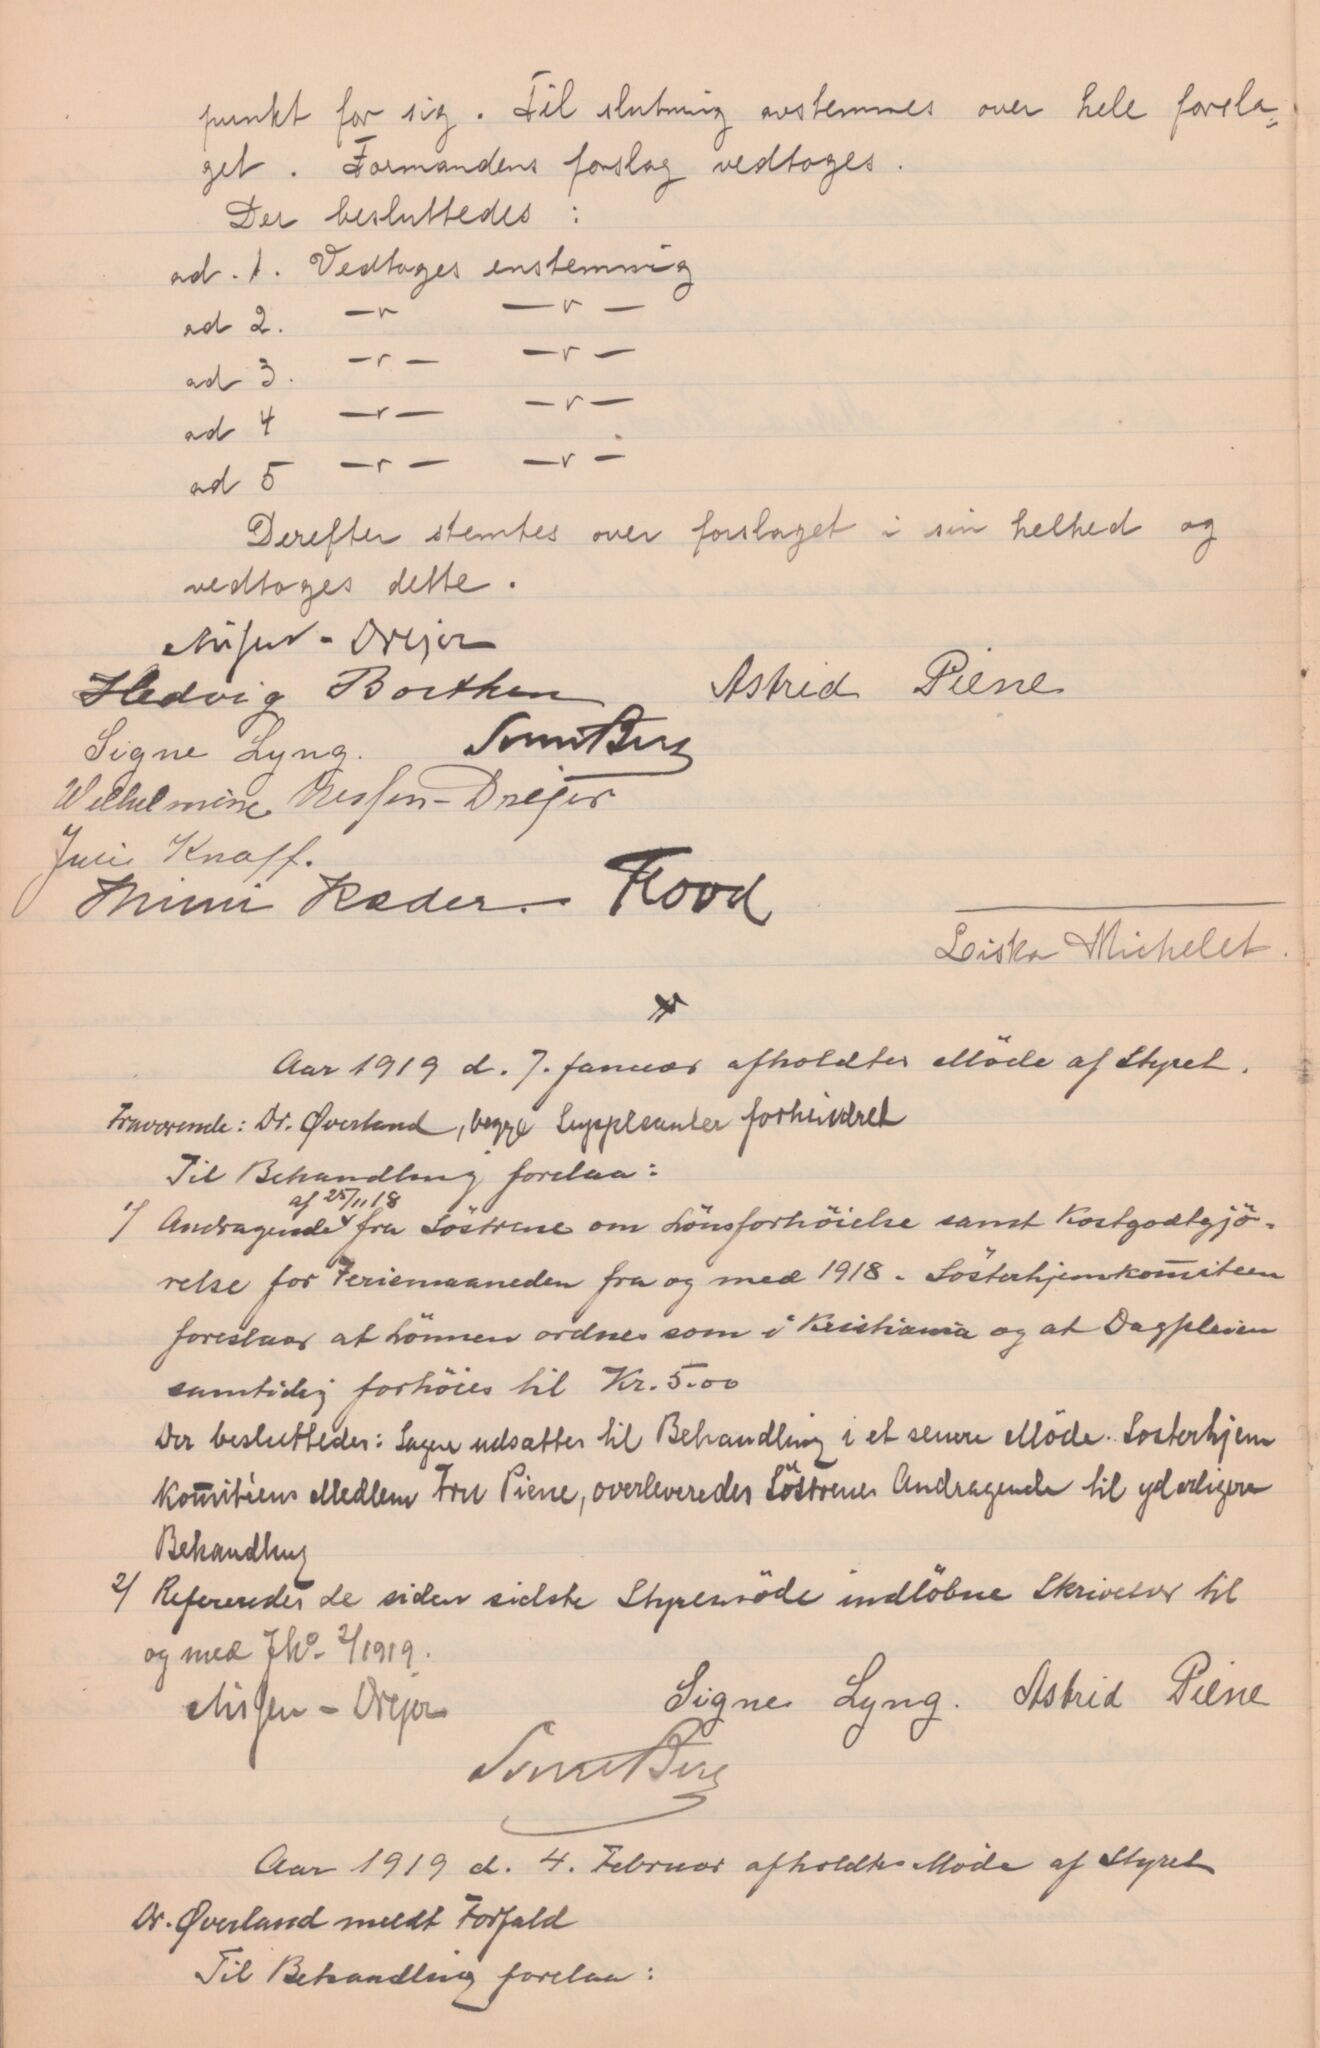 punkt for sig. Til slutning avstemmes over hele forsla=
get. Formandens forslag vedtages.
Der besluttedes:
ad. 1. Vedtages enstemmig
ad 2. —„ —„—
ad 3. —„— —„—
ad 4 —„— —„—
ad 5 —„— —„—
Derefter stemtes over forslaget i sin helhed og
vedtages dette.
Nissen-Drejer
Hedvig Borthen Astrid Piene
Signe Lyng.
Wilhelmine Nissen-Drejer
Julie Knaff.
Mimi Ræder. Flood
Liska Michelet.
Aar 1919 d. 7. Januar afholdtes Möde af Styret.
Fraværende: Dr. Øverland, begge Suppleanter forhindret
Til Behandling forelaa:
af 25/11 18
1/ Andragende fra Söstrene om Lönsforhöielse samt Kostgodtgjö-
relse for Feriemaaneden fra og med 1918. Sösterhjemkomiteen
foreslaar at Lönnen ordnes som i Kristiania og at Dagpleien
samtidig forhöies til Kr. 5.00
Der besluttedes: Sagen udsættes til Behandling i et senere Möde. Sösterhjem
komiteens Medlem Fru Piene, overleveredes Söstrenes Andragende til yderligere
Behandling
2/ Refereredes de siden sidste Styremöde indlöbne Skrivelser til
og med JNo. 2/1919.
Nissen-Drejer Signe Lyng. Astrid Piene
Aar 1919 d. 4. Februar afholdtes Möde af Styret
Dr. Øverland meldt Forfald
Til Behandling forelaa: